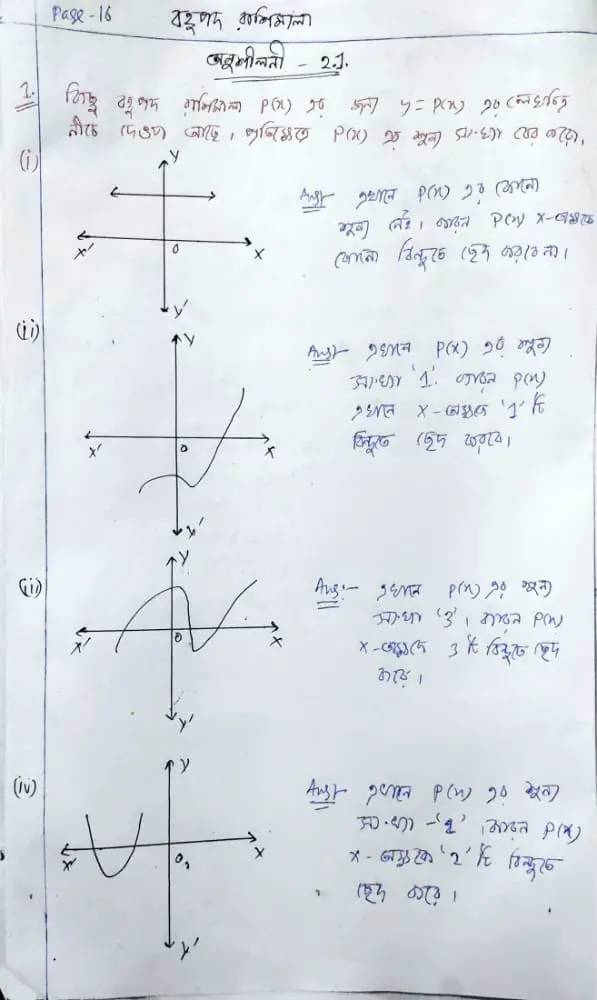 Page-16
বহুপদ রাশিমালা
অনুশীলনী - 2.1.
1. কিছু বহুপদ রাশিমালা P(x) এর জন্য y = P(x) এর লেখচিত্র
নীচে দেওয়া আছে। প্রতিক্ষেত্রে P(x) এর শূন্য সংখ্যা বের করো।
(i)
Y
X'
O
X
Y'
Ans:- এখানে P(x) এর কোনো
শূন্য নেই। কারন P(x) X-অক্ষকে
কোনো বিন্দুতে ছেদ করবেনা।
(ii)
Y
X'
O
X
Y'
Ans:- এখানে P(x) এর শূন্য
সংখ্যা '1'. কারন P(x)
এখানে X-অক্ষকে '1' টি
বিন্দুতে ছেদ করবে।
(iii)
Y
X'
O
X
Y'
Ans:- এখানে P(x) এর শূন্য
সংখ্যা '3', কারন P(x)
X-অক্ষকে 3 টি বিন্দুতে ছেদ
করে।
(iv)
Y
X'
O
X
Y'
Ans:- এখানে P(x) এর শূন্য
সংখ্যা -'2', কারন P(x)
X-অক্ষকে '2' টি বিন্দুতে
ছেদ করে।